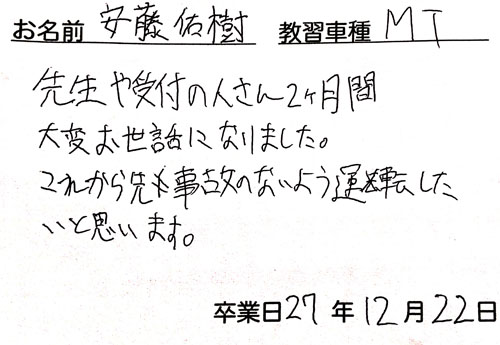 お名前 安藤佑樹 教習車種 MT
先生や受付の人さん2ヶ月間
大変お世話になりました。
これから先も事故のないよう運転した
いと思います。
卒業日27年12月22日